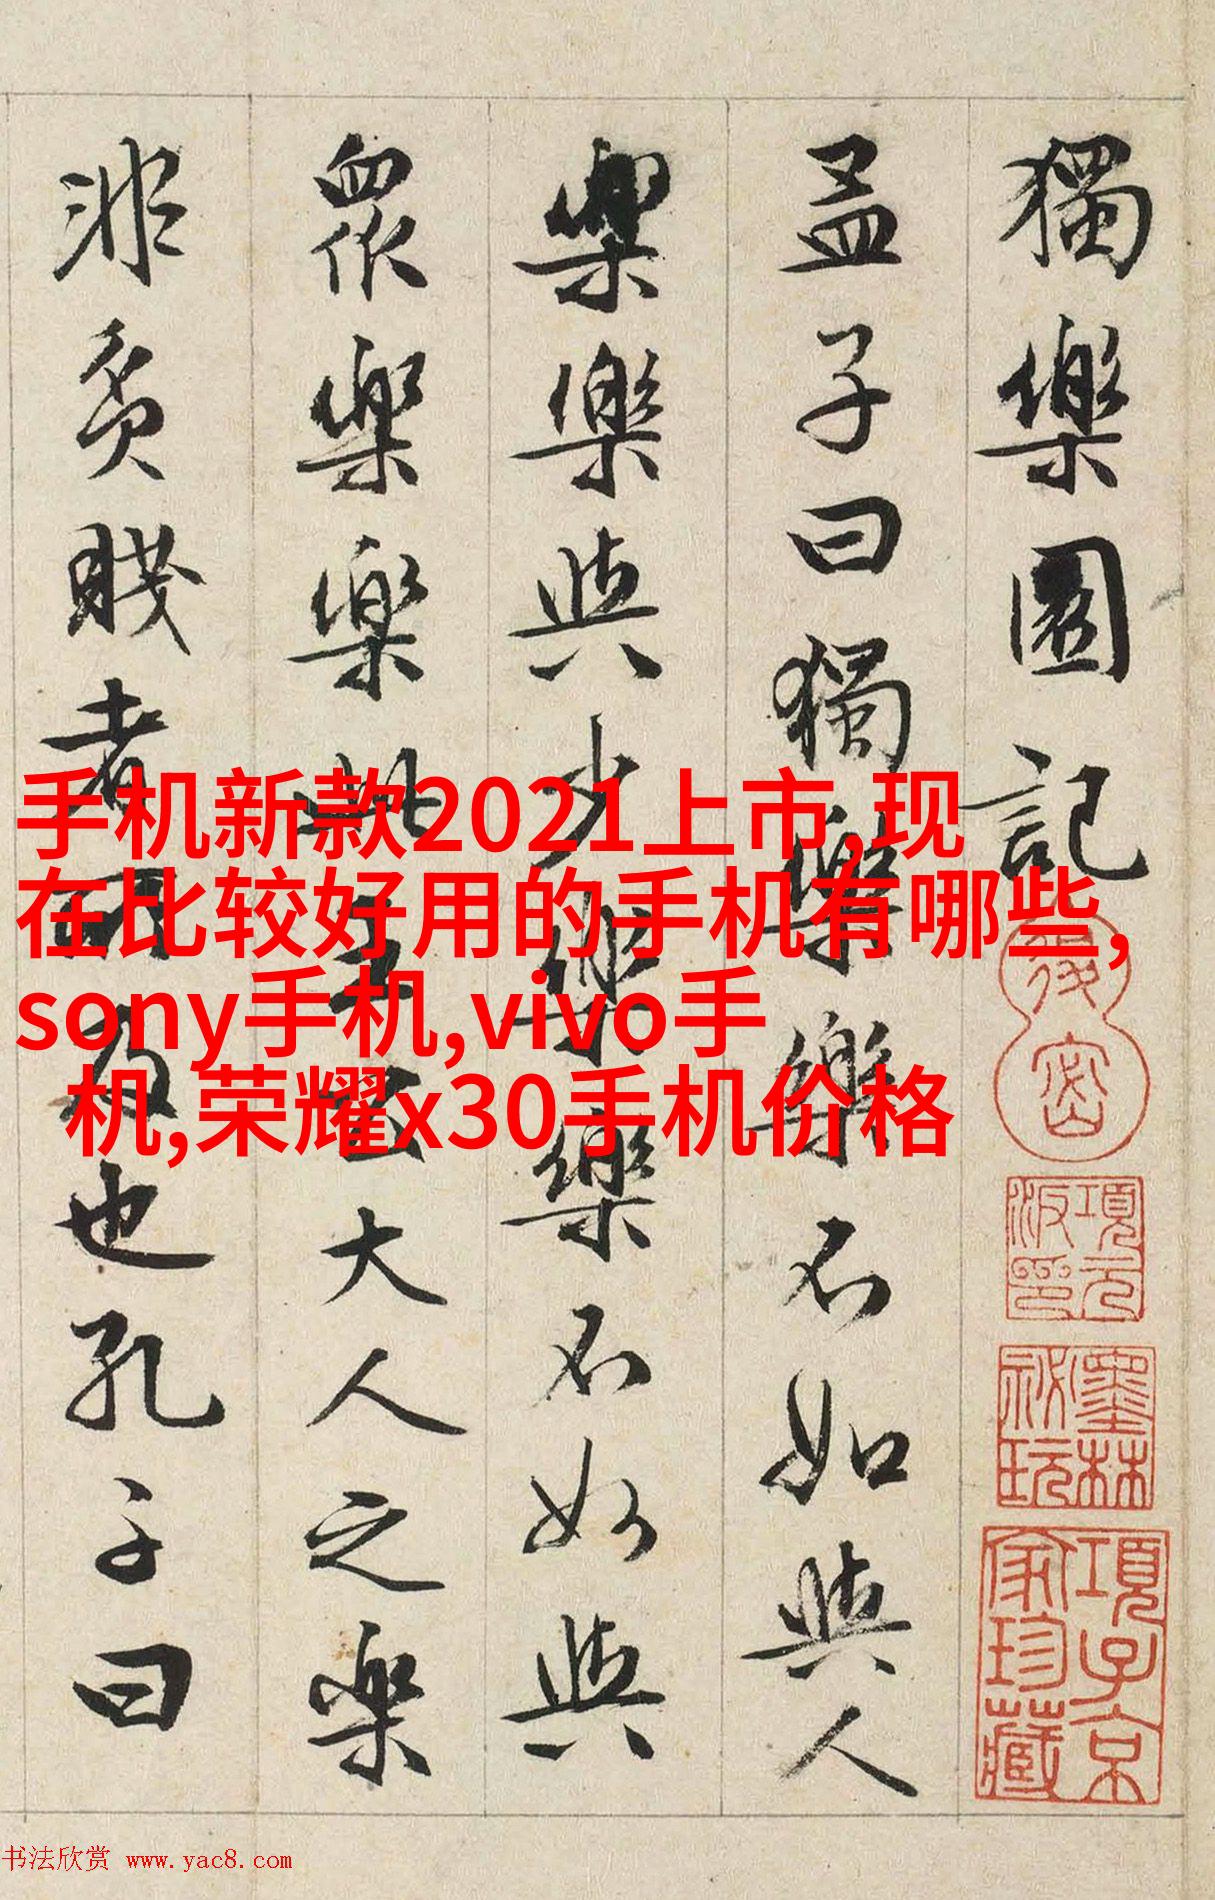 獨樂園記
孟子曰獨樂樂不如與人
樂樂與少樂樂不如與
衆樂樂此王公大人之樂
非貧賤者所及也孔子曰
手机新款2021上市,现
在比较好用的手机有哪些,
sony手机,vivo手
机,荣耀x30手机价格
項元汴印
墨林祕玩
項子京家珍藏
书法欣赏 www.yac8.com